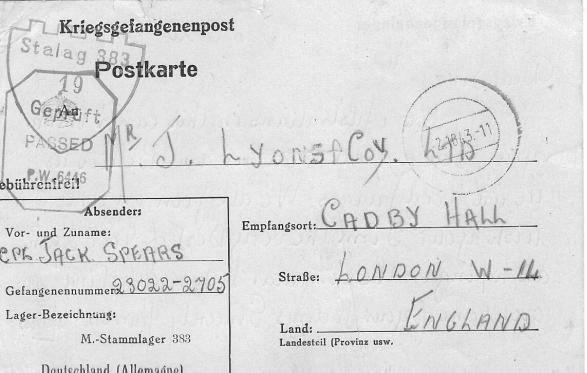 Kriegsgefangenenpost
Stalag 383
Postkarte
19
Geprüft
An
PASSED
P.W. 6446
Mr. J. Lyons & Coy. LTD
ebührenfrei!
Absender:
Vor- und Zuname:
CPL JACK SPEARS
Gefangenennummer: 23022-2705
Lager-Bezeichnung:
M.-Stammlager 383
Deutschland (Allemagne)
Empfangsort: CADBY HALL
Straße: LONDON W-14
Land: ENGLAND
Landesteil (Provinz usw.